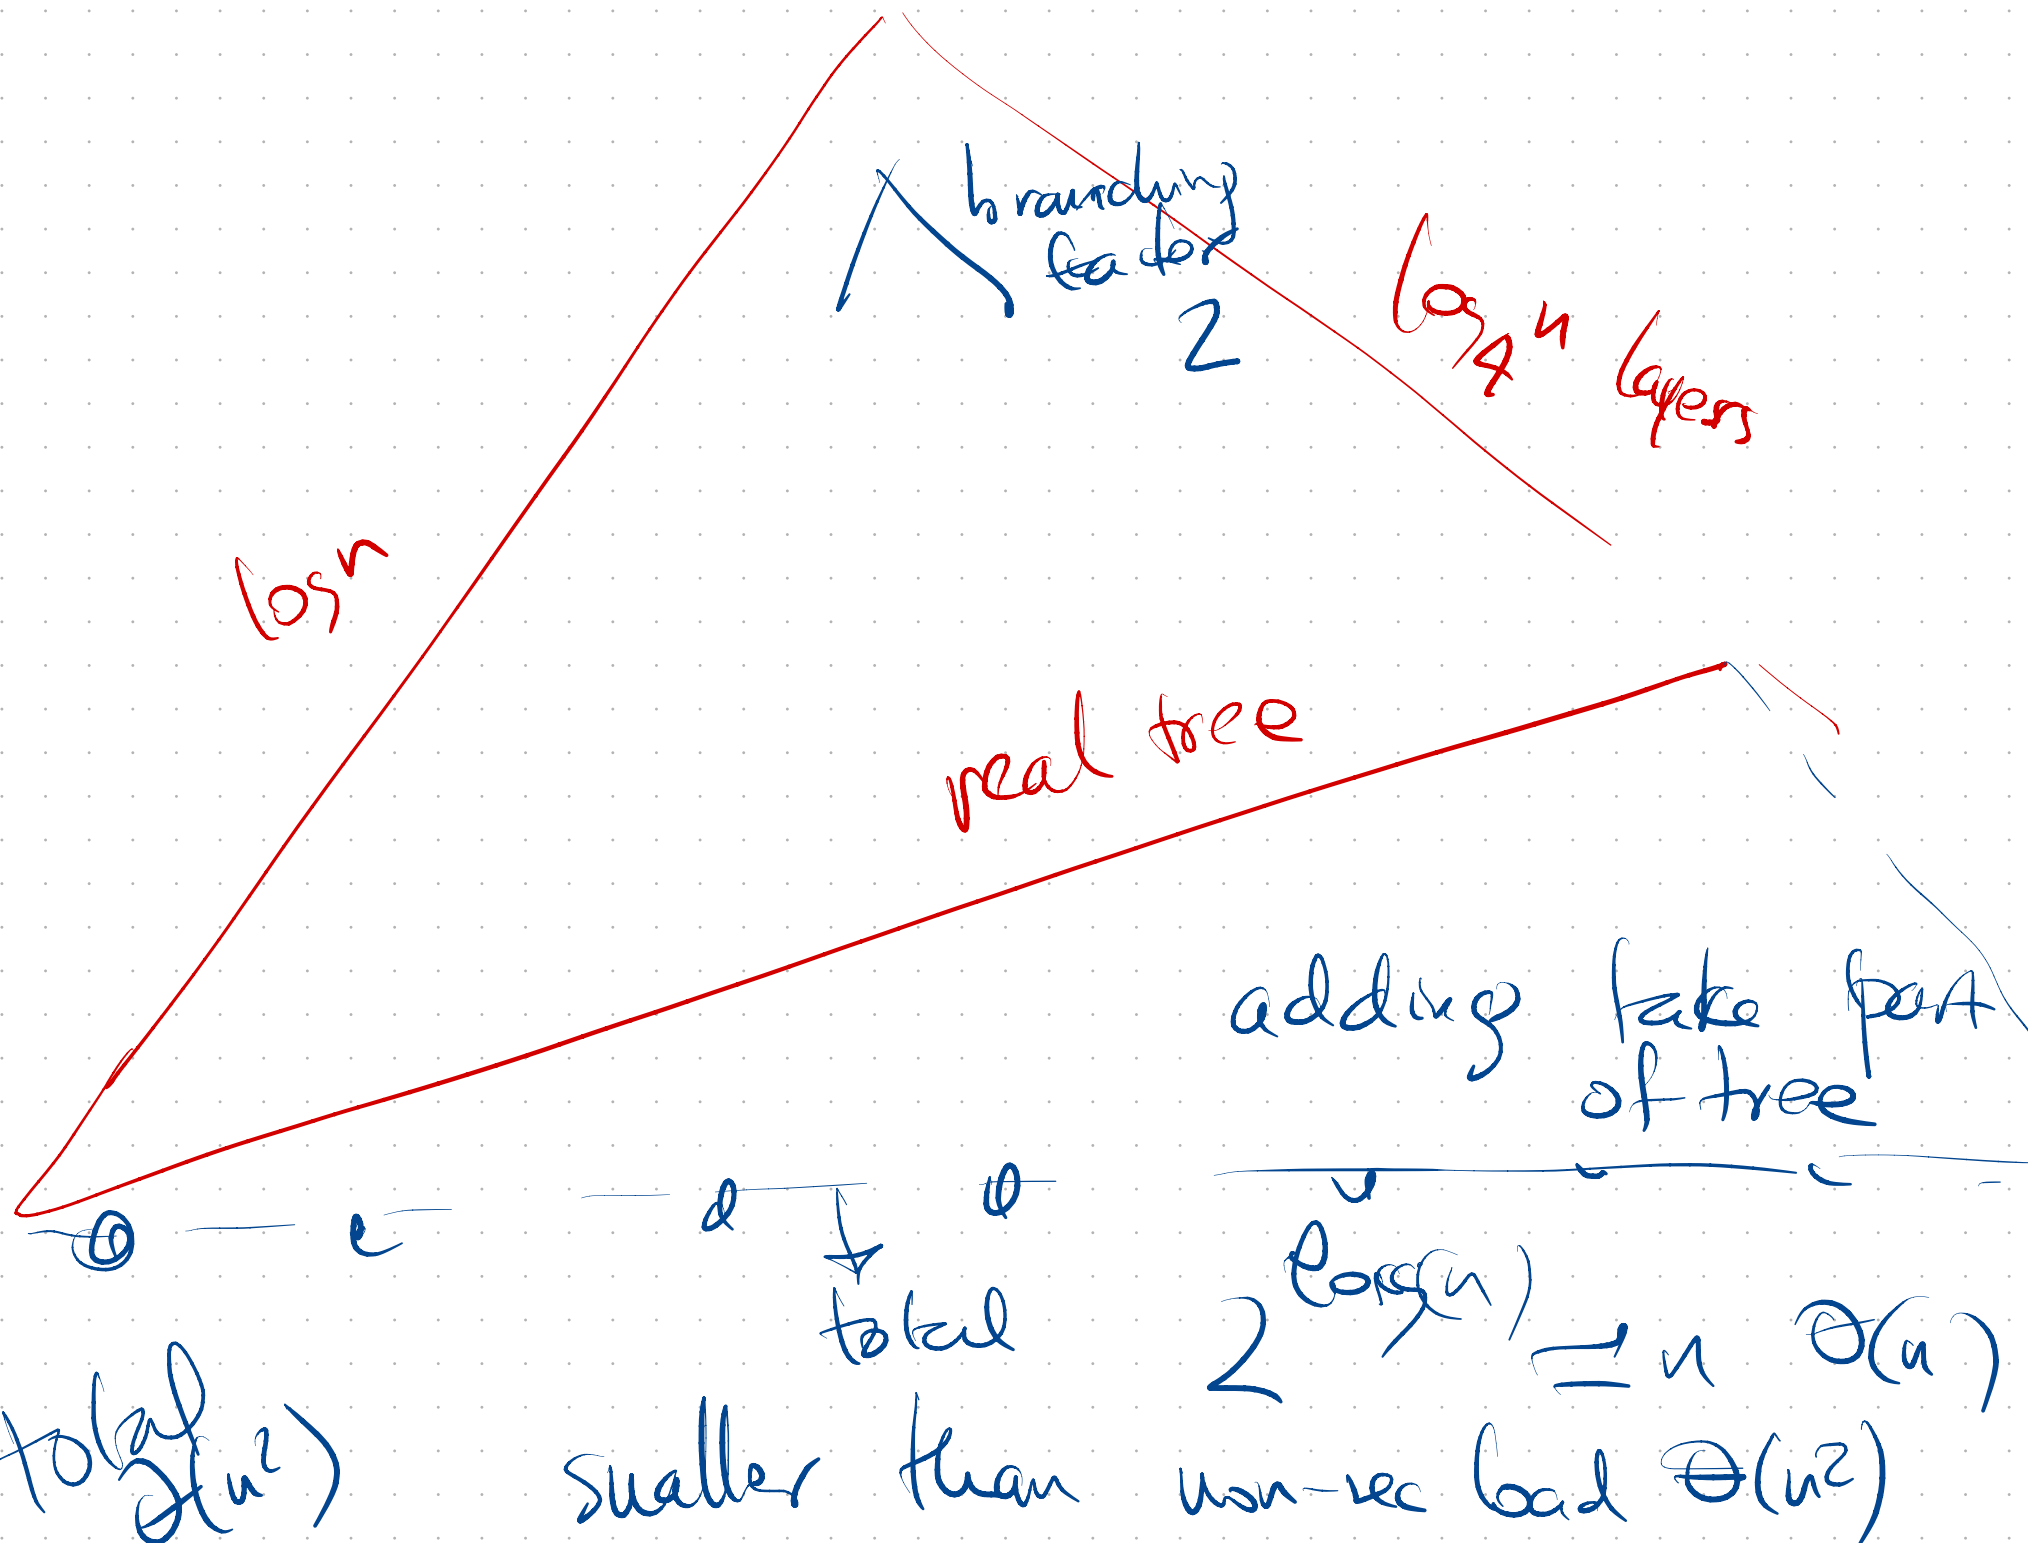 branching
factor
2
log₄ n layers
log n
real tree
adding fake part
of tree
total 2^log(n) = n Θ(n)
total
Θ(n²)
smaller than non-rec load Θ(n²)